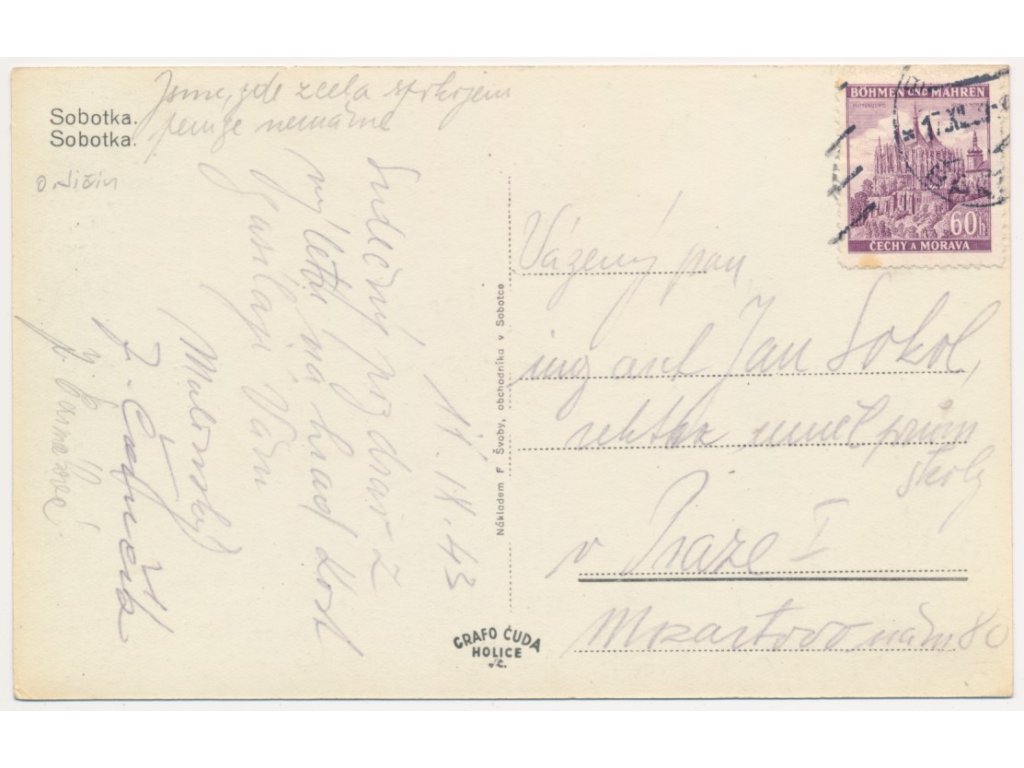 Sobotka.
Sobotka.
Jsme zde zcela spokojeni
peníze nemáme
o Jičín
Srdečný pozdrav z
výletu na hrad Kost
zasílají Vám
11. IX. 43
Nákladem F Švoby, obchodníka v Sobotce
GRAFO ČUDA
HOLICE
BÖHMEN UND MÄHREN
60h
ČECHY A MORAVA
Vážený pan
ing arch Jan Sokol,
rektor uměl prům
školy
v Praze I
Mozartovo nám 80